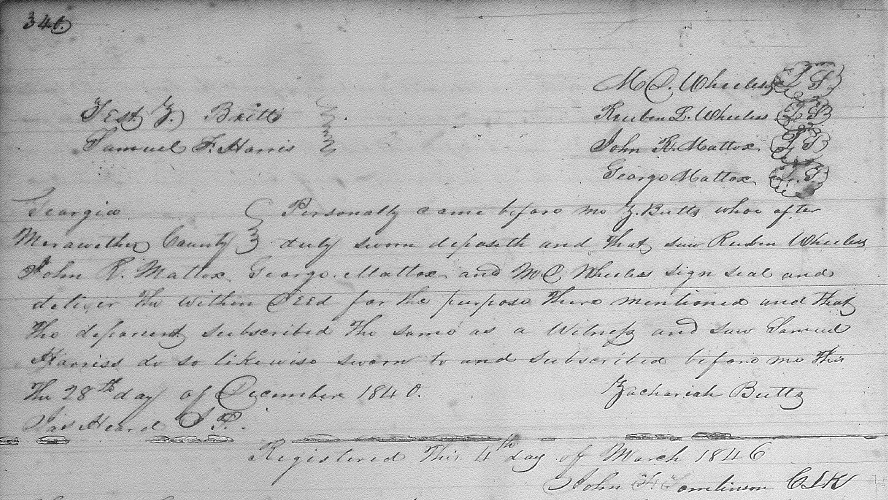 340.
M C. Wheeless L S
Test Z. Britts
Reuben L. Wheeless L S
Samuel F. Harris
John R. Mattox L S
George Mattox L S
Georgia Personally came before me Z. Butts whoe after
Merawether County duly sworn deposeth and that saw Reuben Wheeless
John R. Mattox George Mattox and M C Wheeless sign seal and
deliver the within Deed for the purpose there mentioned and that
the deponent subscribed the same as a Witness and saw Samuel
Harriss do so likewise sworn to and subscribed before me this
the 28th day of December 1840. Zachariah Butts
Jas Heard J. P.
Registered This 4th day of March 1846
John Tomlinson Clk